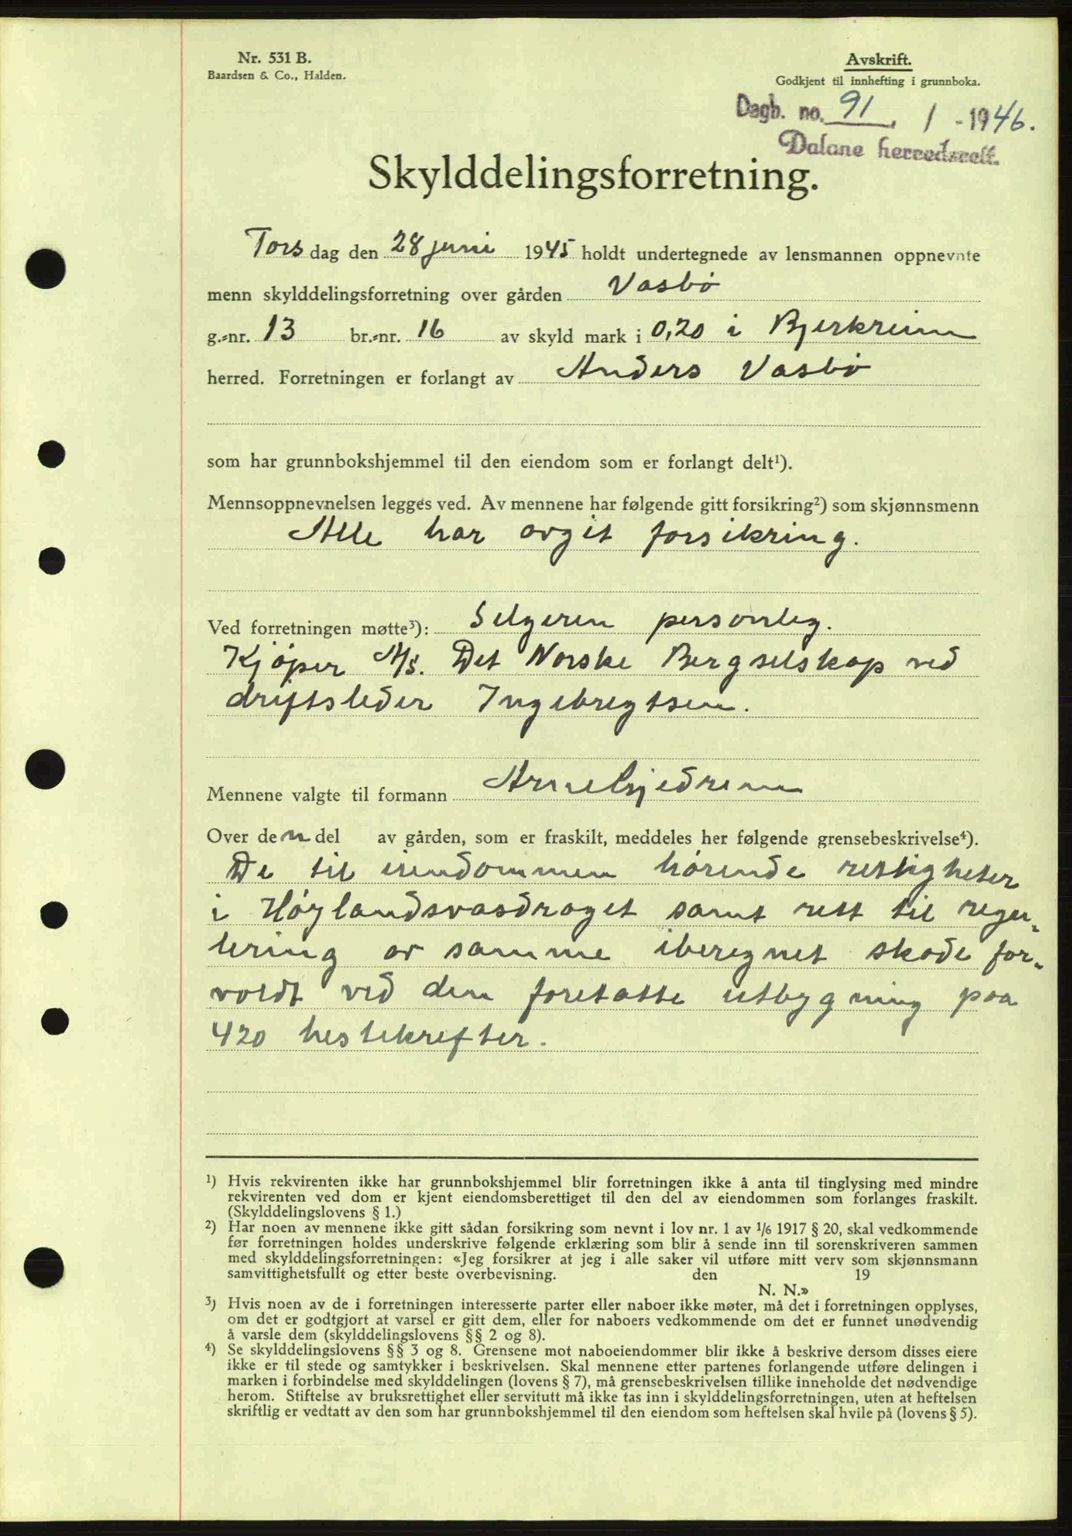 Nr. 531 B.
Baardsen & Co., Halden.
Avskrift.
Godkjent til innhefting i grunnboka.
Dagb. no. 91, / - 1946.
Dalane herredsrett.
Skylddelingsforretning.
Torsdag den 28 juni 1945 holdt undertegnede av lensmannen oppnevnte
menn skylddelingsforretning over gården Vasbø
g.-nr. 13 br.-nr. 16 av skyld mark i 0,20 i Bjerkreim
herred. Forretningen er forlangt av Anders Vasbø
som har grunnbokshjemmel til den eiendom som er forlangt delt¹).
Mennsoppnevnelsen legges ved. Av mennene har følgende gitt forsikring²) som skjønnsmenn
Alle har avgit forsikring.
Ved forretningen møtte³): Selgeren personleg.
Kjøper A/S. Det Norske Bergselskap ved
driftsleder Ingebregtsen.
Mennene valgte til formann Arne Gjedrem
Over den del av gården, som er fraskilt, meddeles her følgende grensebeskrivelse⁴).
De til eiendommen hørende rettigheter
i Høylandsvasdraget samt rett til regu-
lering av samme iberegnet skade for-
voldt ved den foretatte utbygning paa
420 hestekrefter.
¹) Hvis rekvirenten ikke har grunnbokshjemmel blir forretningen ikke å anta til tinglysing med mindre
rekvirenten ved dom er kjent eiendomsberettiget til den del av eiendommen som forlanges fraskilt.
(Skylddelingslovens § 1.)
²) Har noen av mennene ikke gitt sådan forsikring som nevnt i lov nr. 1 av 1/6 1917 § 20, skal vedkommende
før forretningen holdes underskrive følgende erklæring som blir å sende inn til sorenskriveren sammen
med skylddelingsforretningen: «Jeg forsikrer at jeg i alle saker vil utføre mitt verv som skjønnsmann
samvittighetsfullt og etter beste overbevisning. den 19
N. N.»
³) Hvis noen av de i forretningen interesserte parter eller naboer ikke møter, må det i forretningen opplyses,
om det er godtgjort at varsel er gitt dem, eller for naboers vedkommende om det er funnet unødvendig
å varsle dem (skylddelingslovens §§ 2 og 8).
⁴) Se skylddelingslovens §§ 3 og 8. Grensene mot naboeiendommer blir ikke å beskrive dersom disses eiere
ikke er til stede og samtykker i beskrivelsen. Skal mennene etter partenes forlangende utføre delingen i
marken i forbindelse med skylddelingen (lovens § 7), må grensebeskrivelsen tillike inneholde det nødvendige
herom. Stiftelse av bruksrettighet eller servitutt må ikke tas inn i skylddelingsforretningen, uten at heftelsen
skriftlig er vedtatt av den som har grunnbokshjemmel til den eiendom som heftelsen skal hvile på (lovens § 5).